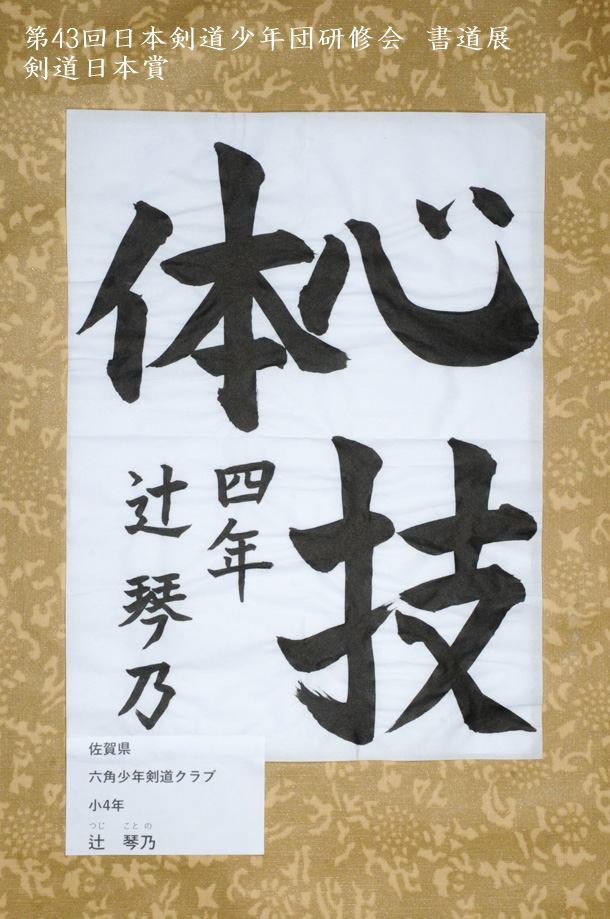 第43回日本剣道少年団研修会 書道展
剣道日本賞
心技
体
四年
辻 琴乃
佐賀県
六角少年剣道クラブ
小4年
つじ ことの
辻 琴乃